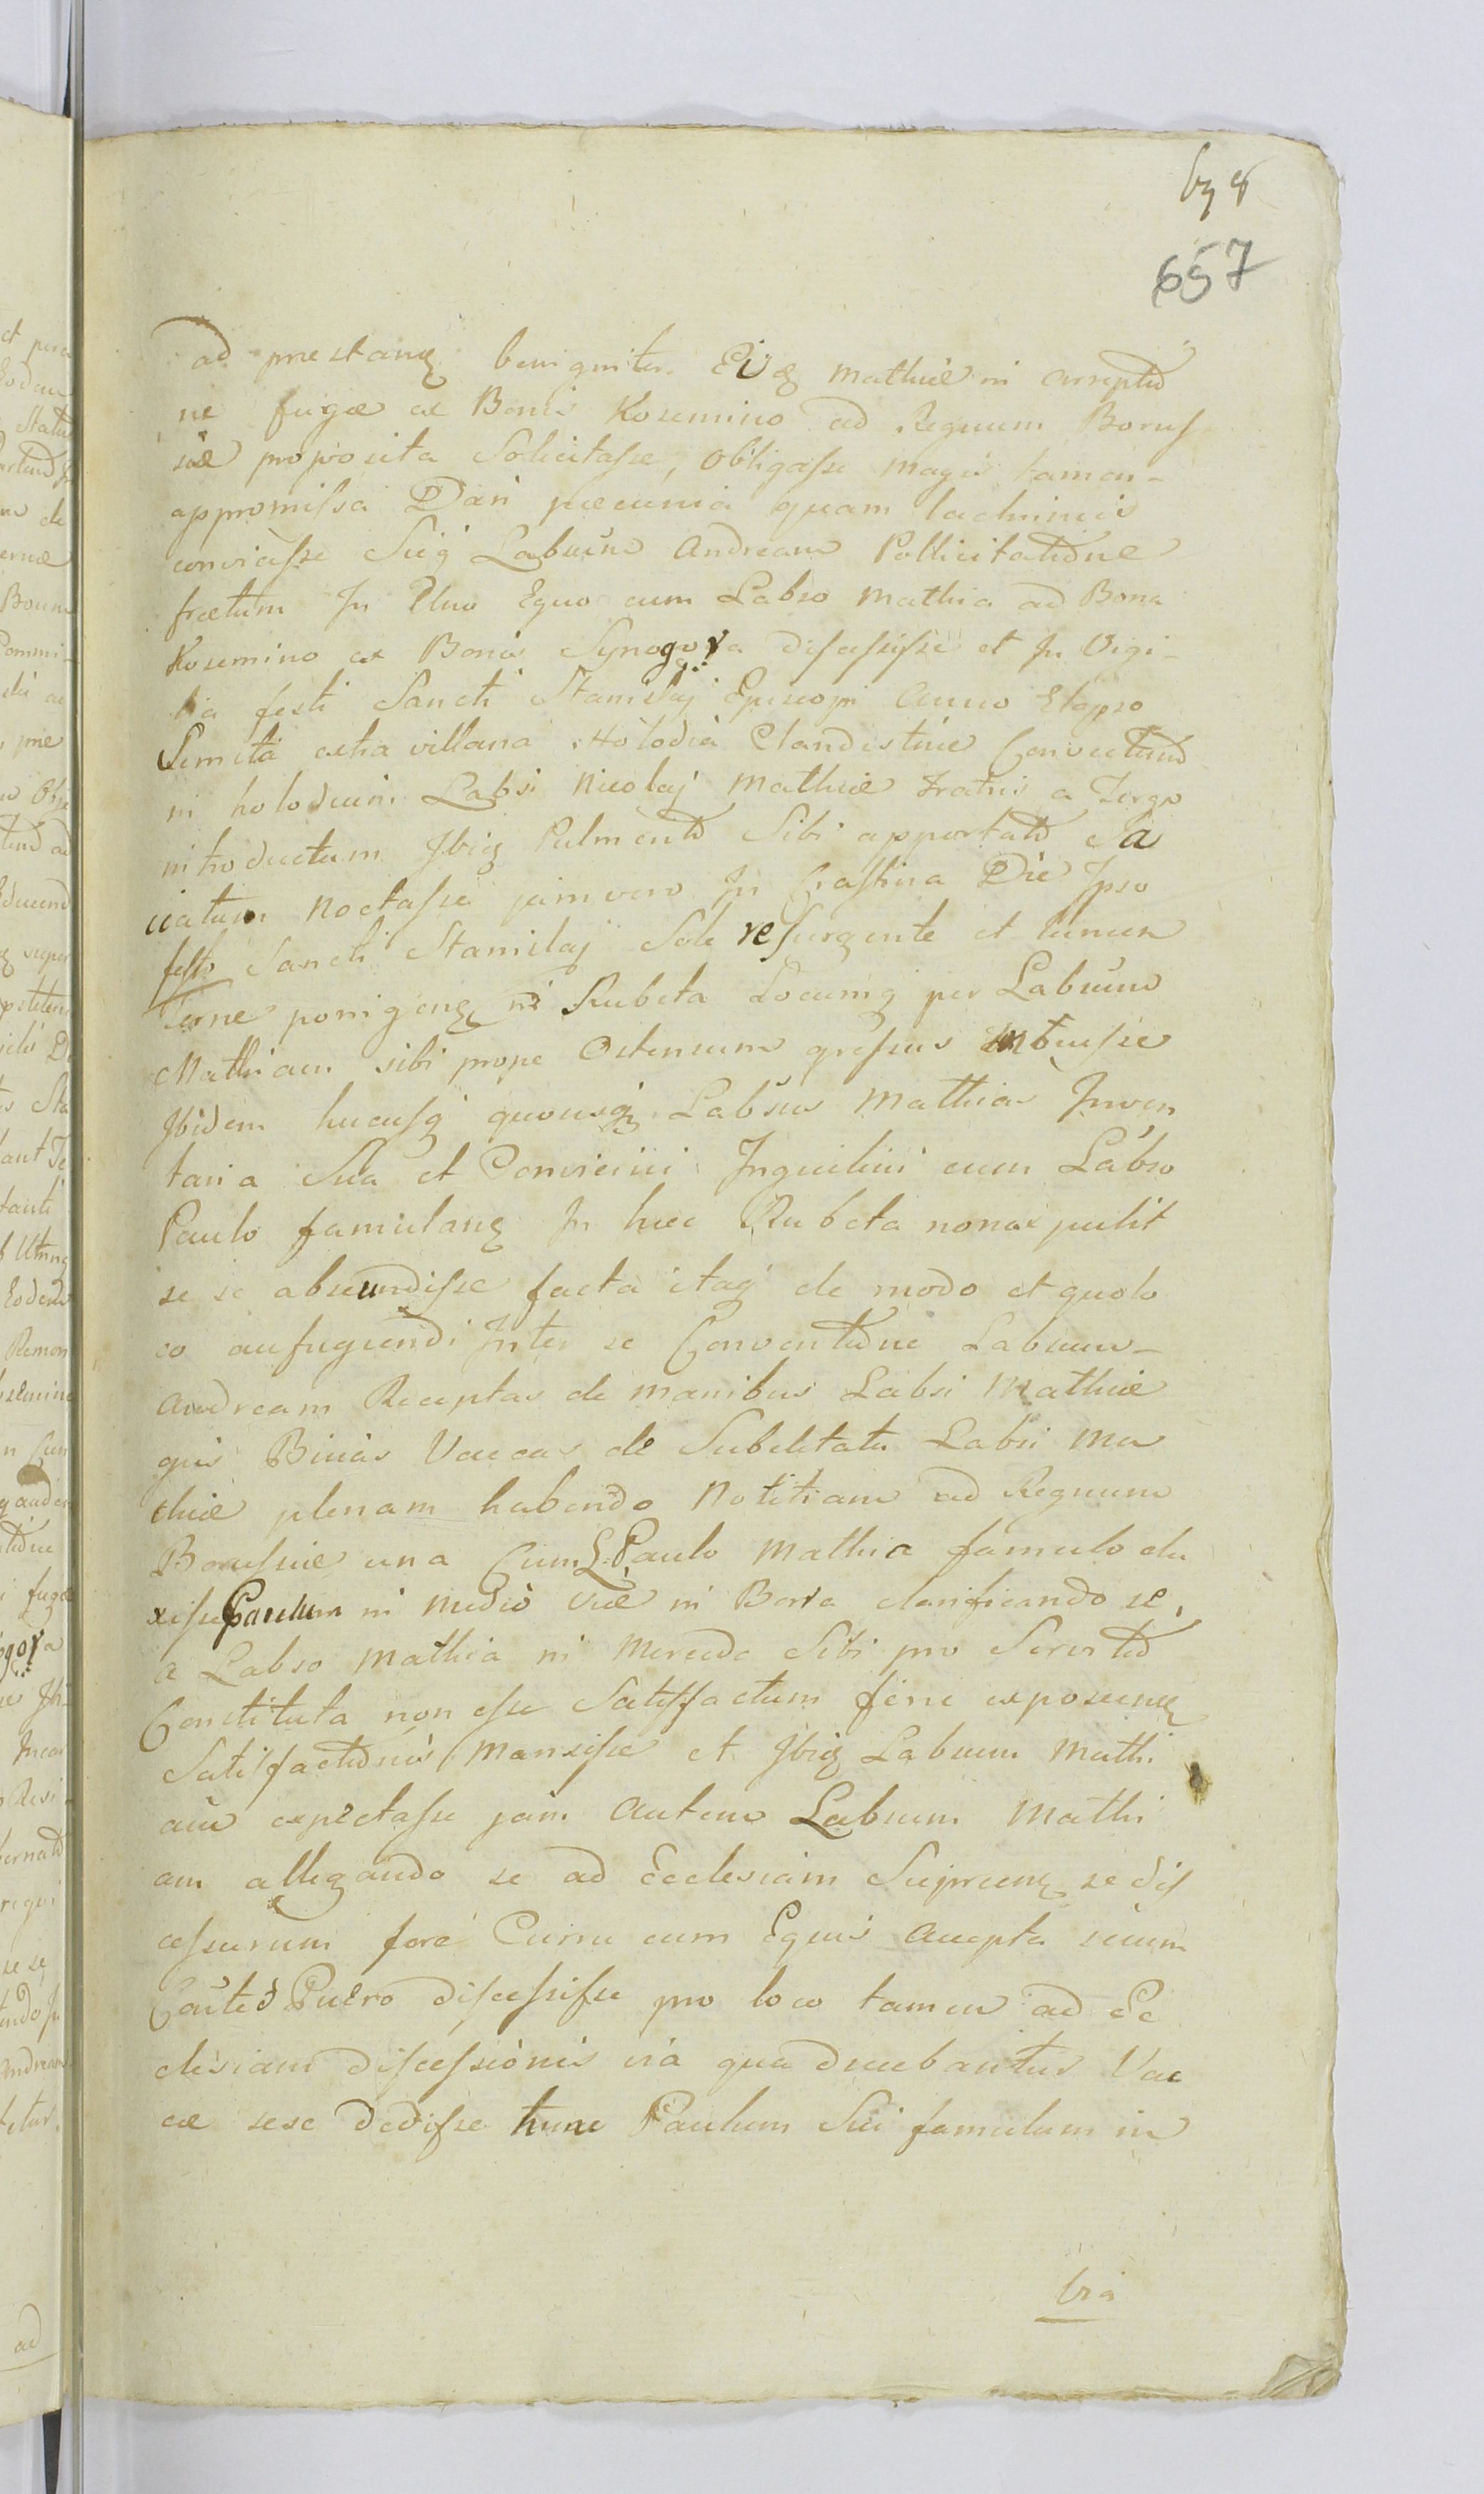 657
ad prestanq benigniter Eidq Mathiæ in Arreptio
ne fugæ ex Bonis Kosemino ad Regnum Borus
siæ proposita Solicitasse, Obligasse magis tamen
appromissa Dari pecunia quam lachrimis
convicisse Sicq Labsum Andream Pollicitatione
fretum In Uno Equo cum Labso Mathia ad Bona
Kosemino ex Bonis Synogora discessisse et In Vigi-
lia festi Sancti Stanislaj Episcopi Anno Elapso
Semita extra villana Clandestine
in Labsi Nicolaj Mathiæ Fratris a Tergo
introductum Ibiq Pulmento Sibi apportato Sa
ciatum Noctasse jam vero In Crastina Die Ipso
festo Sancti Stanislaj Sole resurgente et lumen
Terræ porrigenq in Rubeta Locumq per Labsum
Mathiam sibi prope Ostensum gressus
Ibidem hucusq quousq Labsus Mathias Inven
taria Sua et Convicini Inquilini cum Labso
Paulo famulanq In hæc Rubeta non expulit
se se abscondisse facta itaq de modo et quo lo
co aufugiendi Inter se Conventione Labsum
Andream Receptas de manibus Labsi Mathiæ
quis Binas Vaccas de Subditatu Labsi Ma
thiæ plenam habendo Notitiam ad Regnum
Borussiæ una Cum L. Paulo Mathiæ famulo du
xisse Paulum in medio viæ in Borra clarificando se,
a Labso Mathia in Mercede Sibi pro Servitio
Constituta non esse Satisfactum fine exposcenæ
Satisfactionis Mansisse et Ibiq Labsum Mathi
am expectasse jam autem Labsum Mathi
am allegando se ad Ecclesiam se dis
cessurum fore Curru cum Equis accepta secum
Puero discessisse pro loco tamen ad Ec
clesiam discessionis via qua ducebantur Vac
cæ sese dedisse tunc Paulum Sui famulum in
via